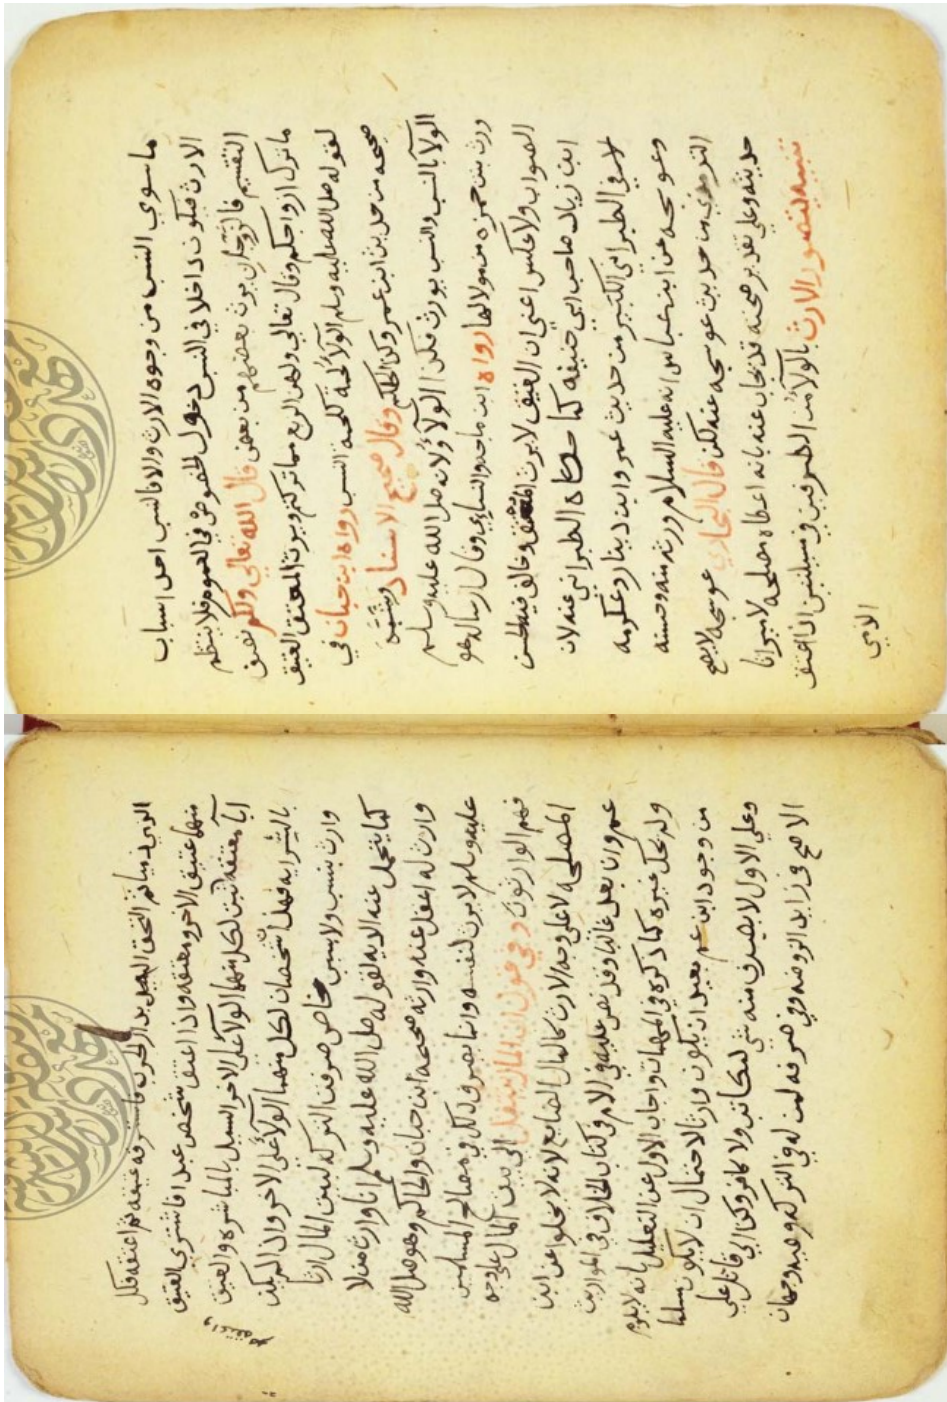 ما سوي النسب من وجوه الارث والا فالنسب احد اسباب
الارث فيكون داخلا في النسب دخول الخصوص في العموم فلا ينتظم
التقسيم فالزوجان يرث بعضهم من بعض قال الله تعالى ولكم نصف
ما ترك ازواجكم وقال تعالي ولهن الربع مما تركتم ويرث المعتق العتيق
لقوله صلي الله عليه وسلم الولآ لحمة كلحمة النسب رواه ابن حبان في
صحيحه من حديث ابن عمر وكذا الحاكم وقال صحيح الاسناد وشبه
الولآ بالنسب والنسب يورث فكذا الولآ ولانه صلي الله عليه وسلم
ورث بنت حمزه من مولا لها رواه ابن ماجه والنسايي وقال ارساله هو
الصواب ولا عكس اعني ان العتيق لا يرث المعتق وخالف فيه الحسن
ابن زياد صاحب ابي حنيفه كما حكاه الطبراني عنه لان
في الطبراني الكبير من حديث عمرو ابن دينار وعكرمه
وعوسجه عن ابن عباس انه عليه السلام ورثه منه وحسنه
الترمذي من حديث عوسجه عنه لكن قال البخاري عوسجه لا يصح
حديثه وعلي تقدير صحته قد يجاب عنه بانه اعطاه مصلحه لا ميراثا
تنبيه يتصور الارث بالولآ من الطرفين في مسيلتين اذا اعتق
الذمي
الذمي ذميا ثم التحق السيد بدار الحرب فاسترقه عتيقه ثم اعتقه فكل
منهما عتيق الاخر ومعتقه واذا اعتق شخص عبدا فاشترى العتيق
ابا معتقه ثبت لكل منهما الولآ علي الاخر السيد بالمباشره والعتيق
واعتقه
بالسرايه فهذان شخصان لكل منهما الولآ علي الاخر وان لم يكن
وارث بنسب ولا سبب خاص صرفت التركه لبيت المال ارثا
كما يتحمل عنه الديه لقوله صلي الله عليه وسلم انا وارث من لا
وارث له اعقل عنه وارثه صححه ابن حبان والحاكم وهو صلي الله
عليه وسلم لا يرث لنفسه وانما يصرف ذلك في مصالح المسلمين
فهم الوارثون وفي قول ان المال ينتقل الي بيت المال علي وجه
المصلحه لا علي وجه الارث كالمال الضايع لانه لا يخلوا عن ابن
عم وان بعد غالبا وقد نص عليه في الام في كتاب الخلاف في المواريث
ولم يحك غيره كما ذكره في المهمات واجاب الاول عن التعليل بانه لا يلزم
من وجود ابن عم بعيد ان يكون وارثا لاحتمال ان لا يكون مسلما
وعلي الاول لا يصرف منه شي لمكاتب ولا كافر وكذا الي قاتل علي
الاصح في زايد الروضه وفي صرفه لمن له في التركه وصيه وجهان